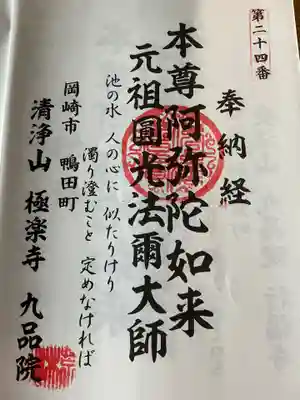 第二十四番
奉納経
本尊阿弥陀如来
元祖圓光法爾大師
池の水 人の心に 似たりけり
濁り澄むこと 定めなければ
岡崎市 鴨田町
清浄山 極楽寺 九品院